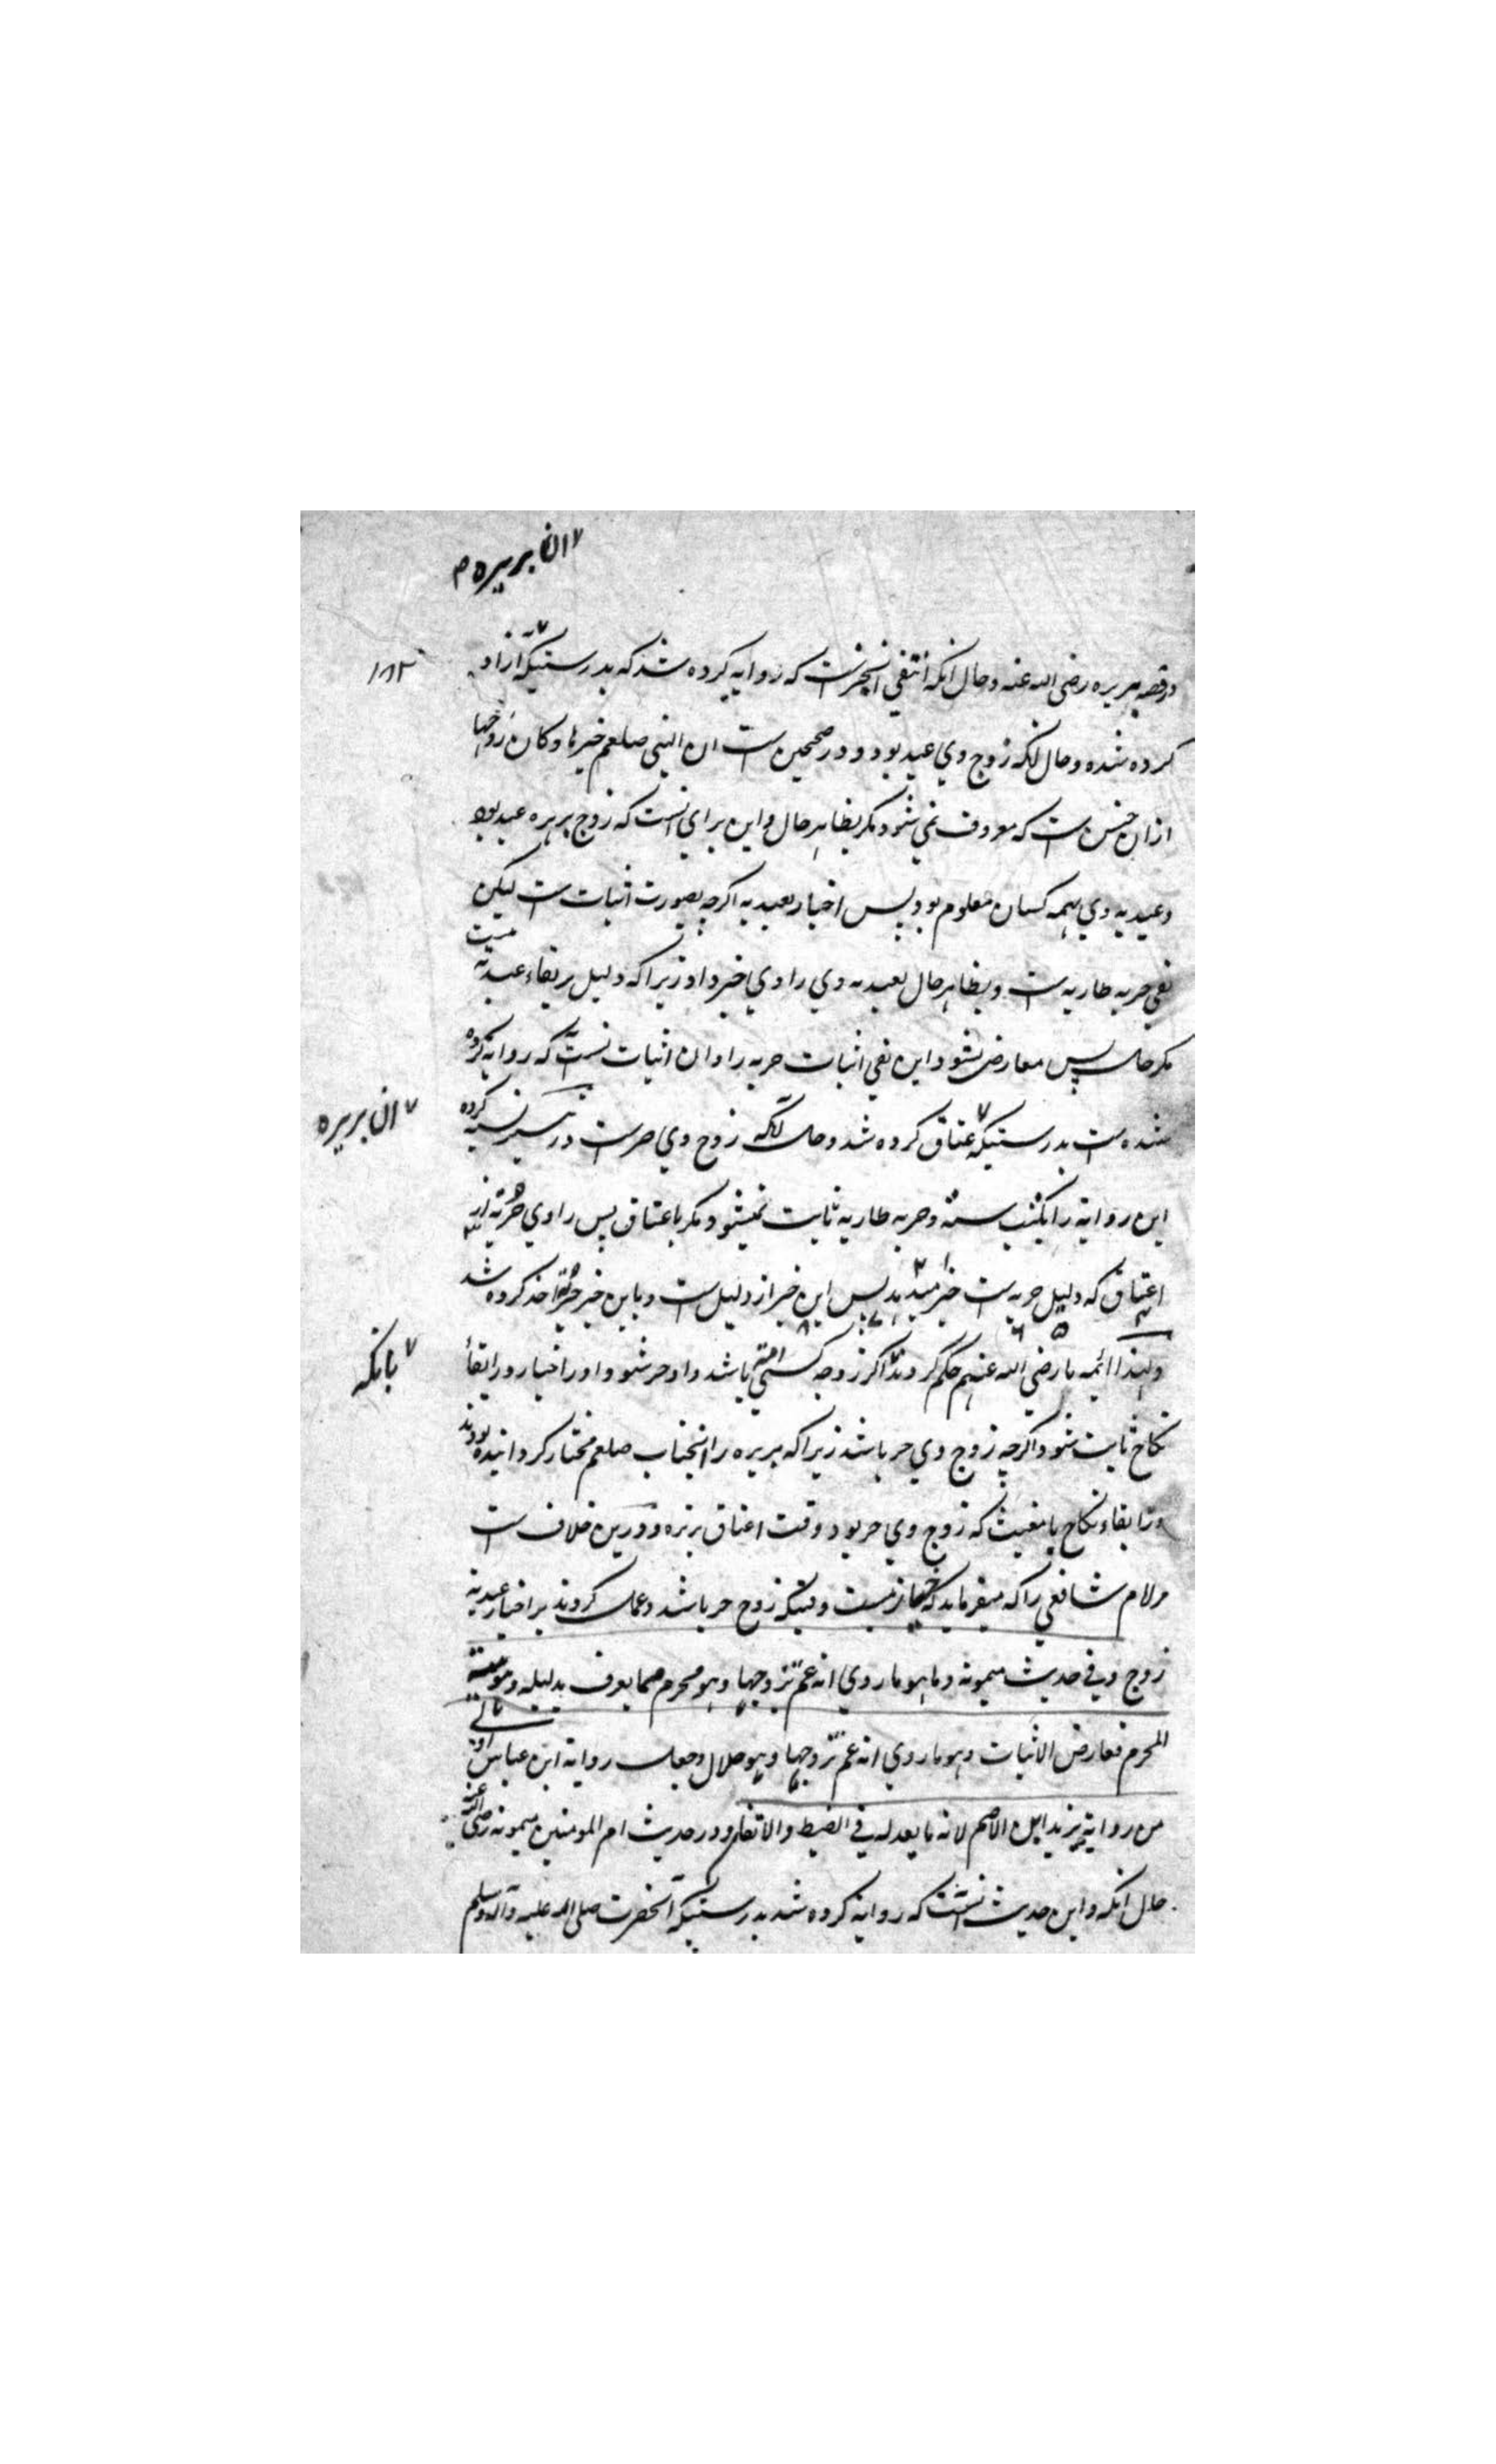 ان بریره م
۱۸۲
درقصه بریره رضی الله عنه وحال انکه انتفی انچیزست که روایه کرده شد که بدرستیکه ازاد
کرده شده وحال انکه زوج وی عبد بود و در صحیحین ست ان النبی صلعم خیرها وکان زوجها
ازان جنس ست که معروف نمی شود مکر بظاهر حال واین برای انست که زوج بریره عبد بود
وعبدیه وی بهمه کسان معلوم بود پس اخبار بعبدیه اکرچه بصورت اثبات ست لیکن
نفی حریه طاریه ست وبظاهر حال بعبدیه وی راوی خبر داد زیرا که دلیل بر بقاء عبدیه نیست
مکر حال پس معارض نشود این نفی اثبات حریه را وان اثبات انست که روایه کرده
شده ست بدرستیکه عتاق کرده شد وحال انکه زوج وی حرست در تیسیر نسبه کرده
ان بریره
این روایة را بکتب سته وحریه طاریه ثابت نمیشود مکر باعتاق پس راوی حریة از
اعتاق که دلیل حریه ست خبر میدهد پس این خبر از دلیل ست وباین خبر حریة اخذ کرده شد
ولهذا ائمه ما رضی الله عنهم حکم کردند اکر زوجه کسی امة باشد واو حر شود اورا خیار در ابقاء
بانکه
نکاح ثابت شود اکرچه زوج وی حر باشد زیرا که بریره را انجناب صلعم مختار کردانیده بودند
در ابقاء نکاح با مغیث که زوج وی حر بود وقت اعتاق بریره ودرین خلاف ست
مر امام شافعی را که میفرماید که خیار نیست وقتیکه زوج حر باشد وعمل کردند بر اخبار عبدیة
زوج وفی حدیث میمونه وما هو ما روی انه عم تزوجها وهو محرم مما یعرف بدلیله وهو هیئة
المحرم فعارض الاثبات وهو ما روی انه عم تزوجها وهو حلال وجعل روایة ابن عباس اولی
من روایة یزید ابن الاصم لانه لا یعدله فی الضبط والاتقان ودر حدیث ام المومنین میمونه رضی الله عنه
حال انکه واین حدیث انست که روایة کرده شد بدرستیکه آنحضرت صلی الله علیه وآله وسلم